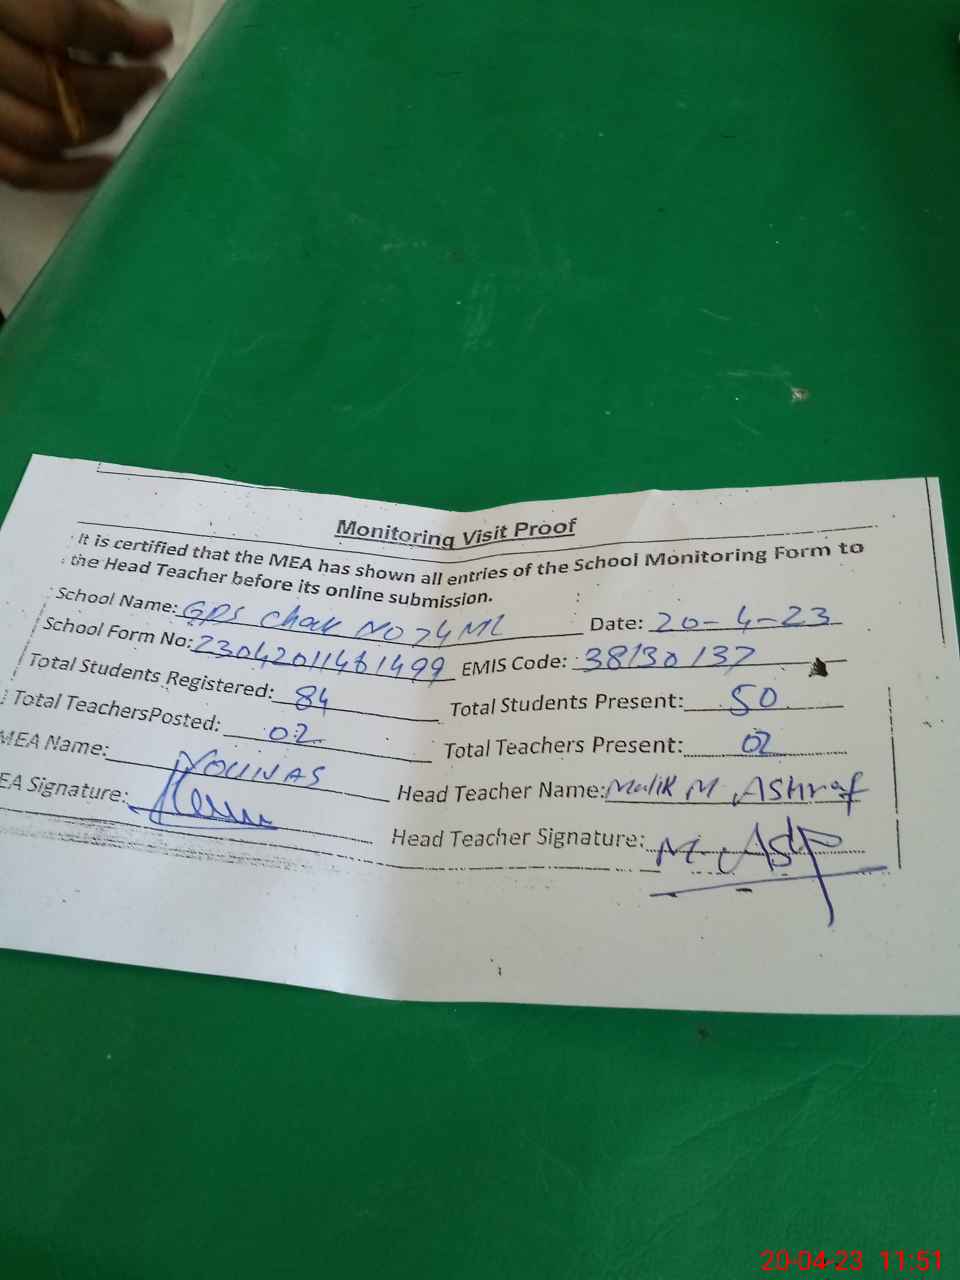 Monitoring Visit Proof
It is certified that the MEA has shown all entries of the School Monitoring Form to
the Head Teacher before its online submission.
School Name: GPS Chak No 74 ML Date: 20-4-23
School Form No: 23042011481499 EMIS Code: 38130137
Total Students Registered: 84 Total Students Present: 50
Total TeachersPosted: 02 Total Teachers Present: 02
MEA Name: YOUNAS Head Teacher Name: Malik M Ashraf
EA Signature: Head Teacher Signature: M. Ash
20-04-23 11:51